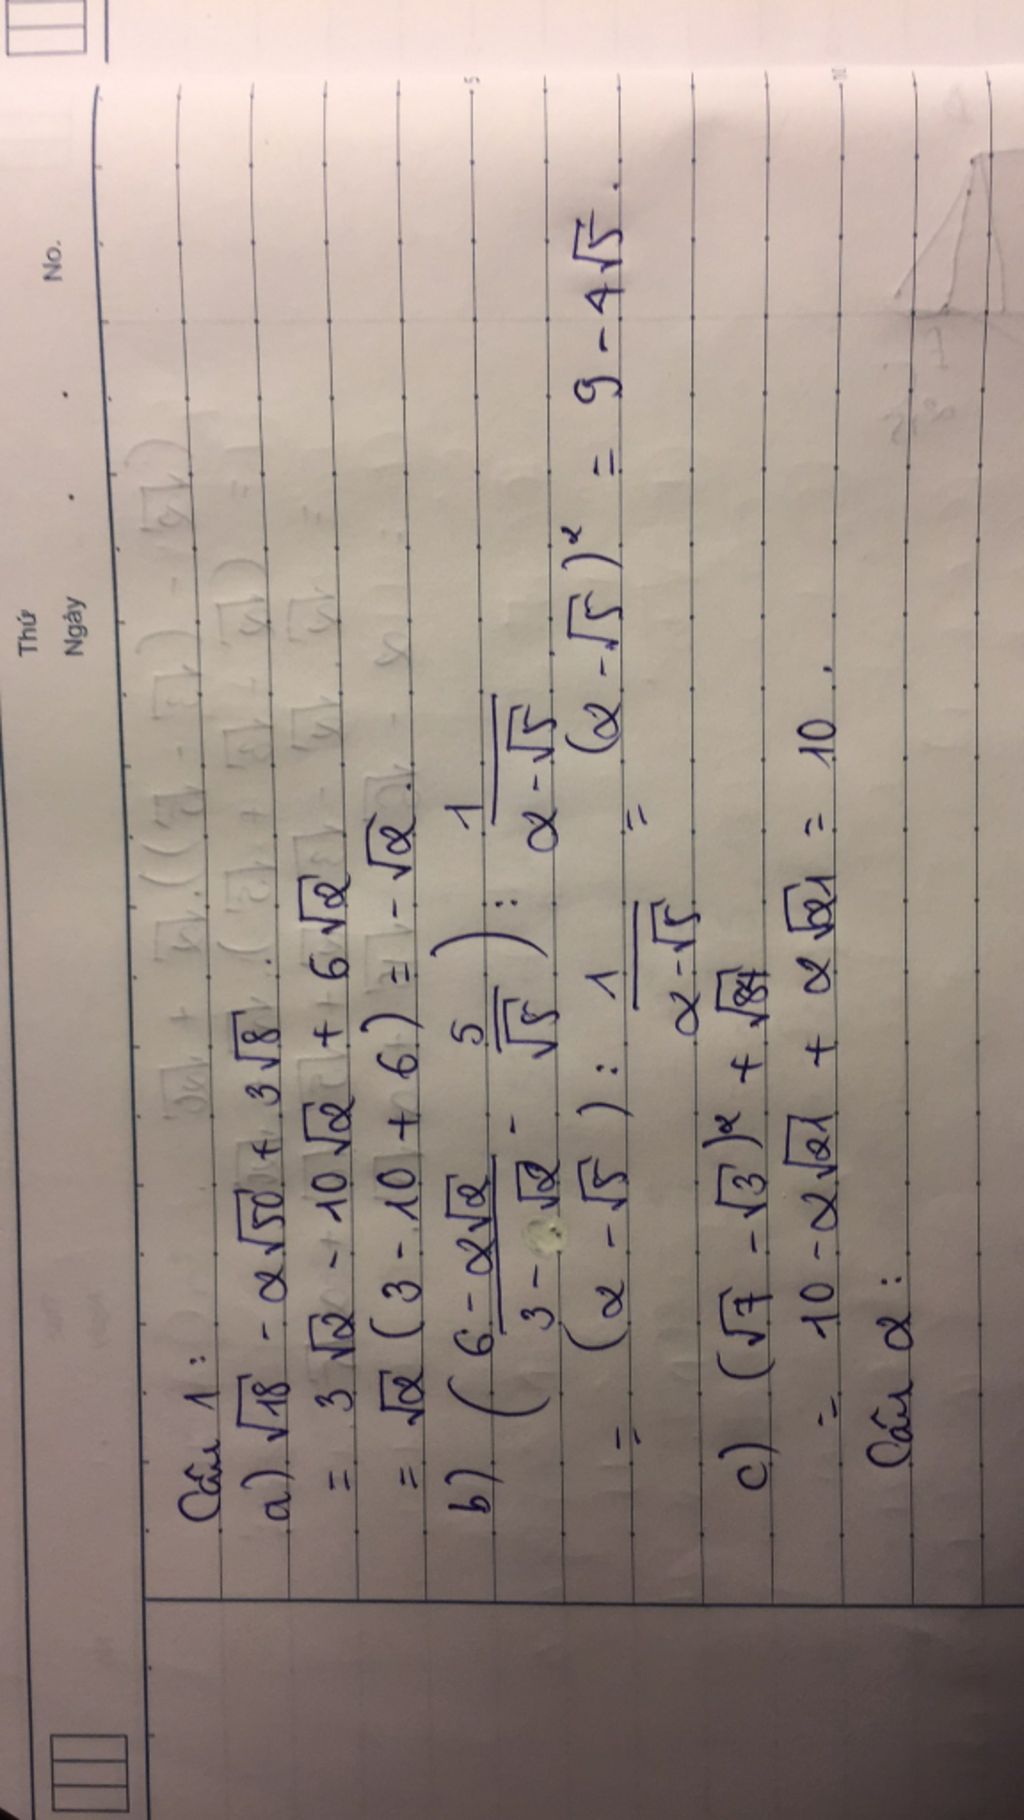 Thứ
Ngày No.
Câu 1:
a) √18 - 2√50 + 3√8
= 3√2 - 10√2 + 6√2
= √2 (3 - 10 + 6) = -√2.
b) ( (6 - 2√2)/(3 - √2) - 5/√5 ) : 1/(2 - √5)
= (2 - √5) : 1/(2 - √5) = (2 - √5)² = 9 - 4√5.
c) (√7 - √3)² + √84
= 10 - 2√21 + 2√21 = 10.
Câu 2:
5
10